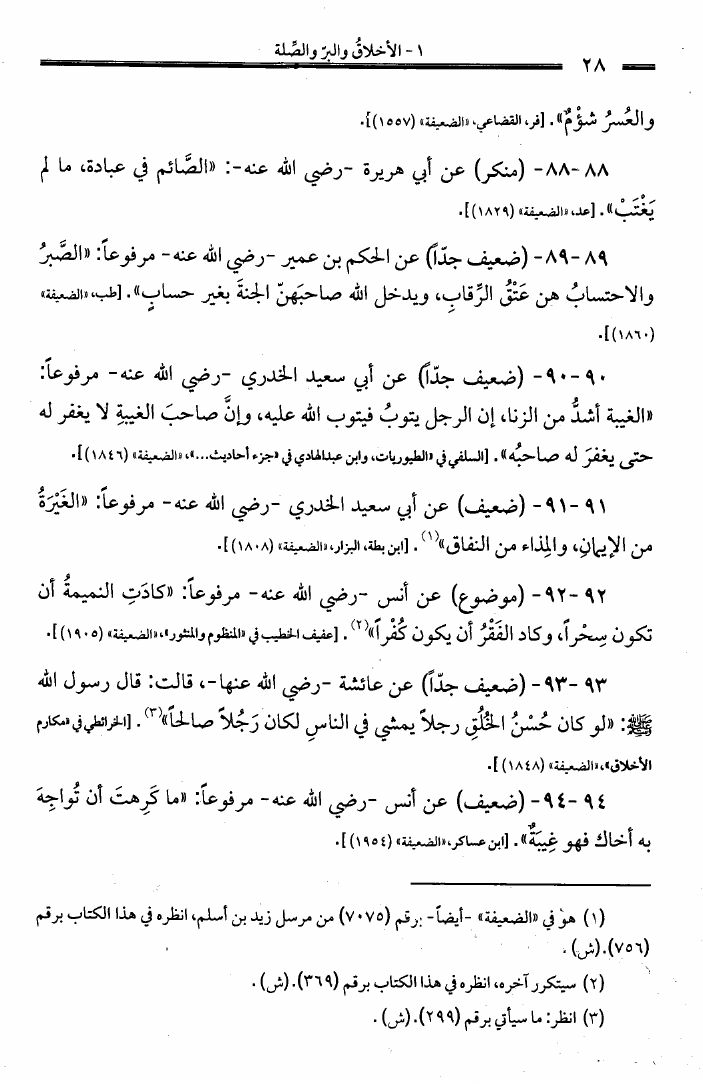 ١ - الأخلاقُ والبرّ والصِّلة
٢٨
والعُسرُ شؤْمٌ». [فر، القضاعي، «الضعيفة» (١٥٥٧)].
٨٨ -٨٨- (منكر) عن أبي هريرة -رضي الله عنه-: «الصَّائم في عبادة، ما لم
يَغْتَبْ». [عد، «الضعيفة» (١٨٢٩)].
٨٩ -٨٩- (ضعيف جدّاً) عن الحكم بن عمير -رضي الله عنه- مرفوعاً: «الصَّبرُ
والاحتسابُ هن عَتْقُ الرِّقابِ، ويدخل الله صاحبَهنّ الجنةَ بغير حسابٍ». [طب، «الضعيفة»
(١٨٦٠)].
٩٠ -٩٠- (ضعيف جدّاً) عن أبي سعيد الخدري -رضي الله عنه- مرفوعاً:
«الغيبة أشدُّ من الزنا، إن الرجل يتوبُ فيتوب الله عليه، وإنَّ صاحبَ الغيبةِ لا يغفر له
حتى يغفرَ له صاحبُه». [السلفي في «الطيوريات، وابن عبدالهادي في «جزء أحاديث...»، «الضعيفة» (١٨٤٦)].
٩١ -٩١- (ضعيف) عن أبي سعيد الخدري -رضي الله عنه- مرفوعاً: «الغَيْرَةُ
من الإيمانِ، والمِذاء من النفاق»(١). [ابن بطة، البزار، «الضعيفة» (١٨٠٨)].
٩٢ -٩٢- (موضوع) عن أنس -رضي الله عنه- مرفوعاً: «كادَتِ النميمةُ أن
تكون سِحْراً، وكاد الفَقْرُ أن يكون كُفْراً»(٢). [عفيف الخطيب في «المنظوم والمنثور»، «الضعيفة» (١٩٠٥)].
٩٣ -٩٣- (ضعيف جدّاً) عن عائشة -رضي الله عنها-، قالت: قال رسول الله
ﷺ: «لو كان حُسْنُ الخُلُقِ رجلاً يمشي في الناسِ لكان رَجُلاً صالحاً»(٣). [الخرائطي في «مكارم
الأخلاق»، «الضعيفة» (١٨٤٨)].
٩٤ -٩٤- (ضعيف) عن أنس -رضي الله عنه- مرفوعاً: «ما كَرِهتَ أن تُواجِهَ
به أخاكَ فهو غِيبَةٌ». [ابن عساكر، «الضعيفة» (١٩٥٤)].
(١) هو في «الضعيفة» -أيضاً- برقم (٧٠٧٥) من مرسل زيد بن أسلم، انظره في هذا الكتاب برقم
(٧٥٦).(ش).
(٢) سيتكرر آخره، انظره في هذا الكتاب برقم (٣٦٩).(ش).
(٣) انظر: ما سيأتي برقم (٢٩٩).(ش).